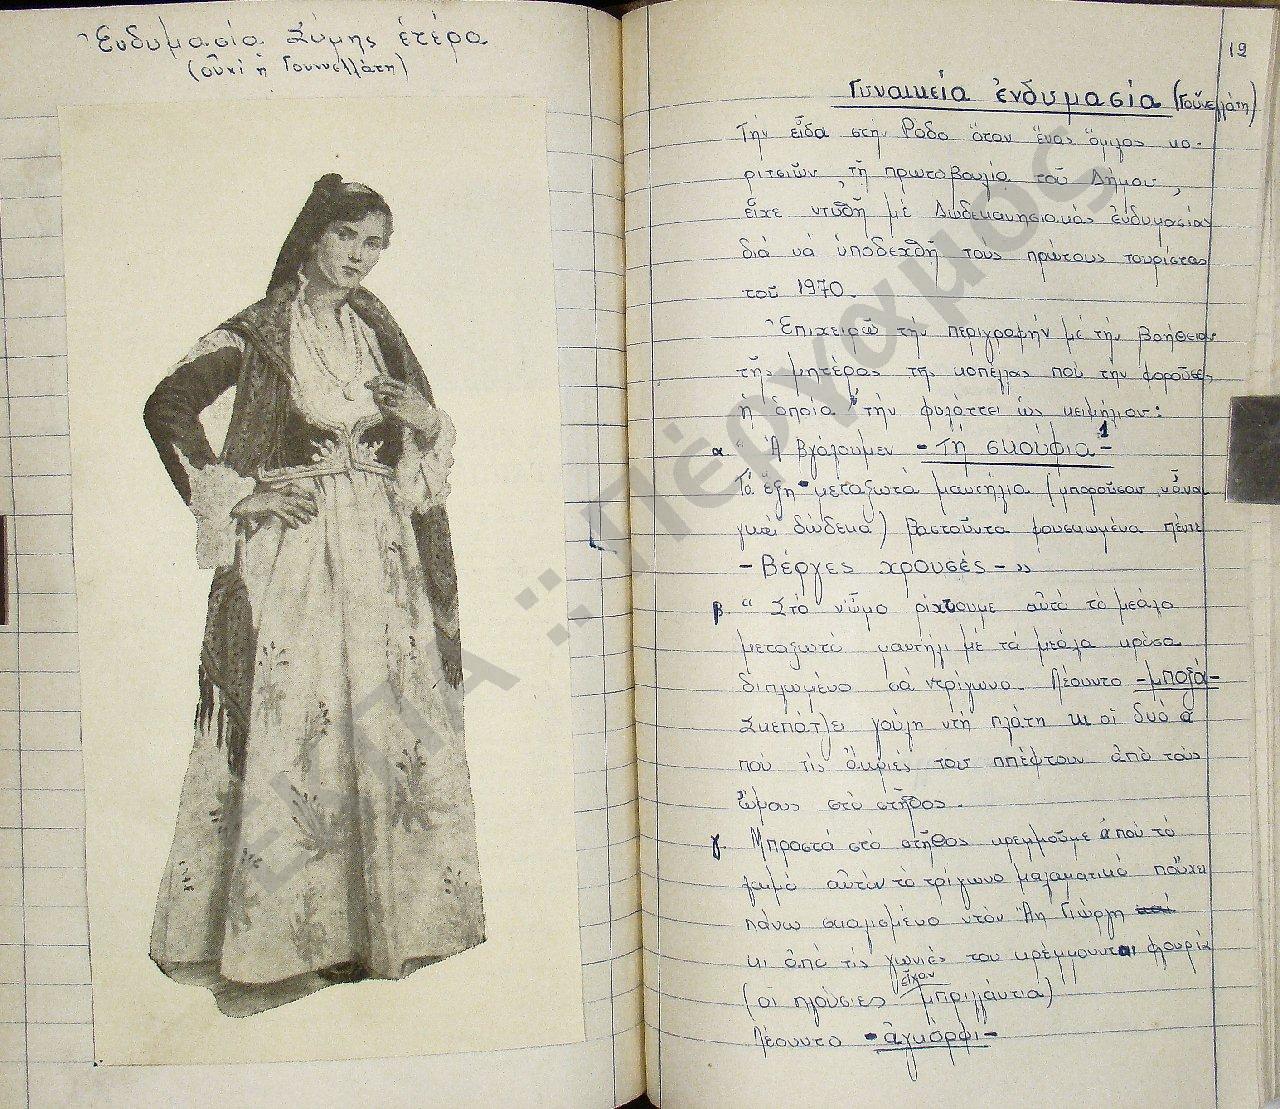 Ἐνδυμασία Σύμης ἑτέρα
(οὐχὶ ἡ Γουνελλάτη)
12
Γυναικεία ἐνδυμασία (Γουνελλάτη)
Τὴν εἶδα στὴν Ρόδο ὅταν ἕνας ὅμιλος κο-
ριτσιῶν τῇ πρωτοβουλίᾳ τοῦ Δήμου,
εἶχε ντυθῆ μὲ Δωδεκανησιακὰς ἐνδυμασίας
διὰ νὰ ὑποδεχθῆ τοὺς πρώτους τουρίστας
τοῦ 1970.
Ἐπιχειρῶ τὴν περιγραφὴν μὲ τὴν βοήθειαν
τῆς μητέρας τῆς κοπέλλας ποὺ τὴν φοροῦσε,
ἡ ὁποία τὴν φυλάττει ὡς κειμήλιον:
α " Ἀ βγάλουμεν - τὴ σκούφια 1 -
Τὰ ἕξη μεταξωτὰ μαντήλια (μποροῦσαν νἆναι
καὶ δώδεκα) βαστοῦντα φουσκωμένα πέντε
- Βέργες χρουσές - "
β. " Στὸ νῶμο ρίχτουμε αὐτὸ τὸ μεάλο
μεταξωτὸ μαντήλι μὲ τὰ μεάλα κρόσα
διπλωμένο σὰ ντρίγωνο. Λέουντο - μποξᾶ -
Σκεπάτζει γούλη ντὴ πλάτη κι οἱ δυὸ ἀ
ποὺ τὶς ἄκριές του ππέφτουν ἀπὸ τοὺς
ὤμους στὸ στῆθος.
γ. Μπροστὰ στὸ στῆθος κρεμμοῦμε ἀποὺ τὸ
λαιμὸ αὐτὸν τὸ τρίγωνο μαλαματικὸ πούχει
πάνω σκαλισμένο ντὸν Ἅη Γιώργη
κι ἀπὸ τὶς γωνιές του κρέμμουνται φλουριὰ
(οἱ πλούσιες εἶχαν μπριλλάντια)
Λέουντο - ἀγκόρφι -
ΕΚΠΑ :: Πέργαμος